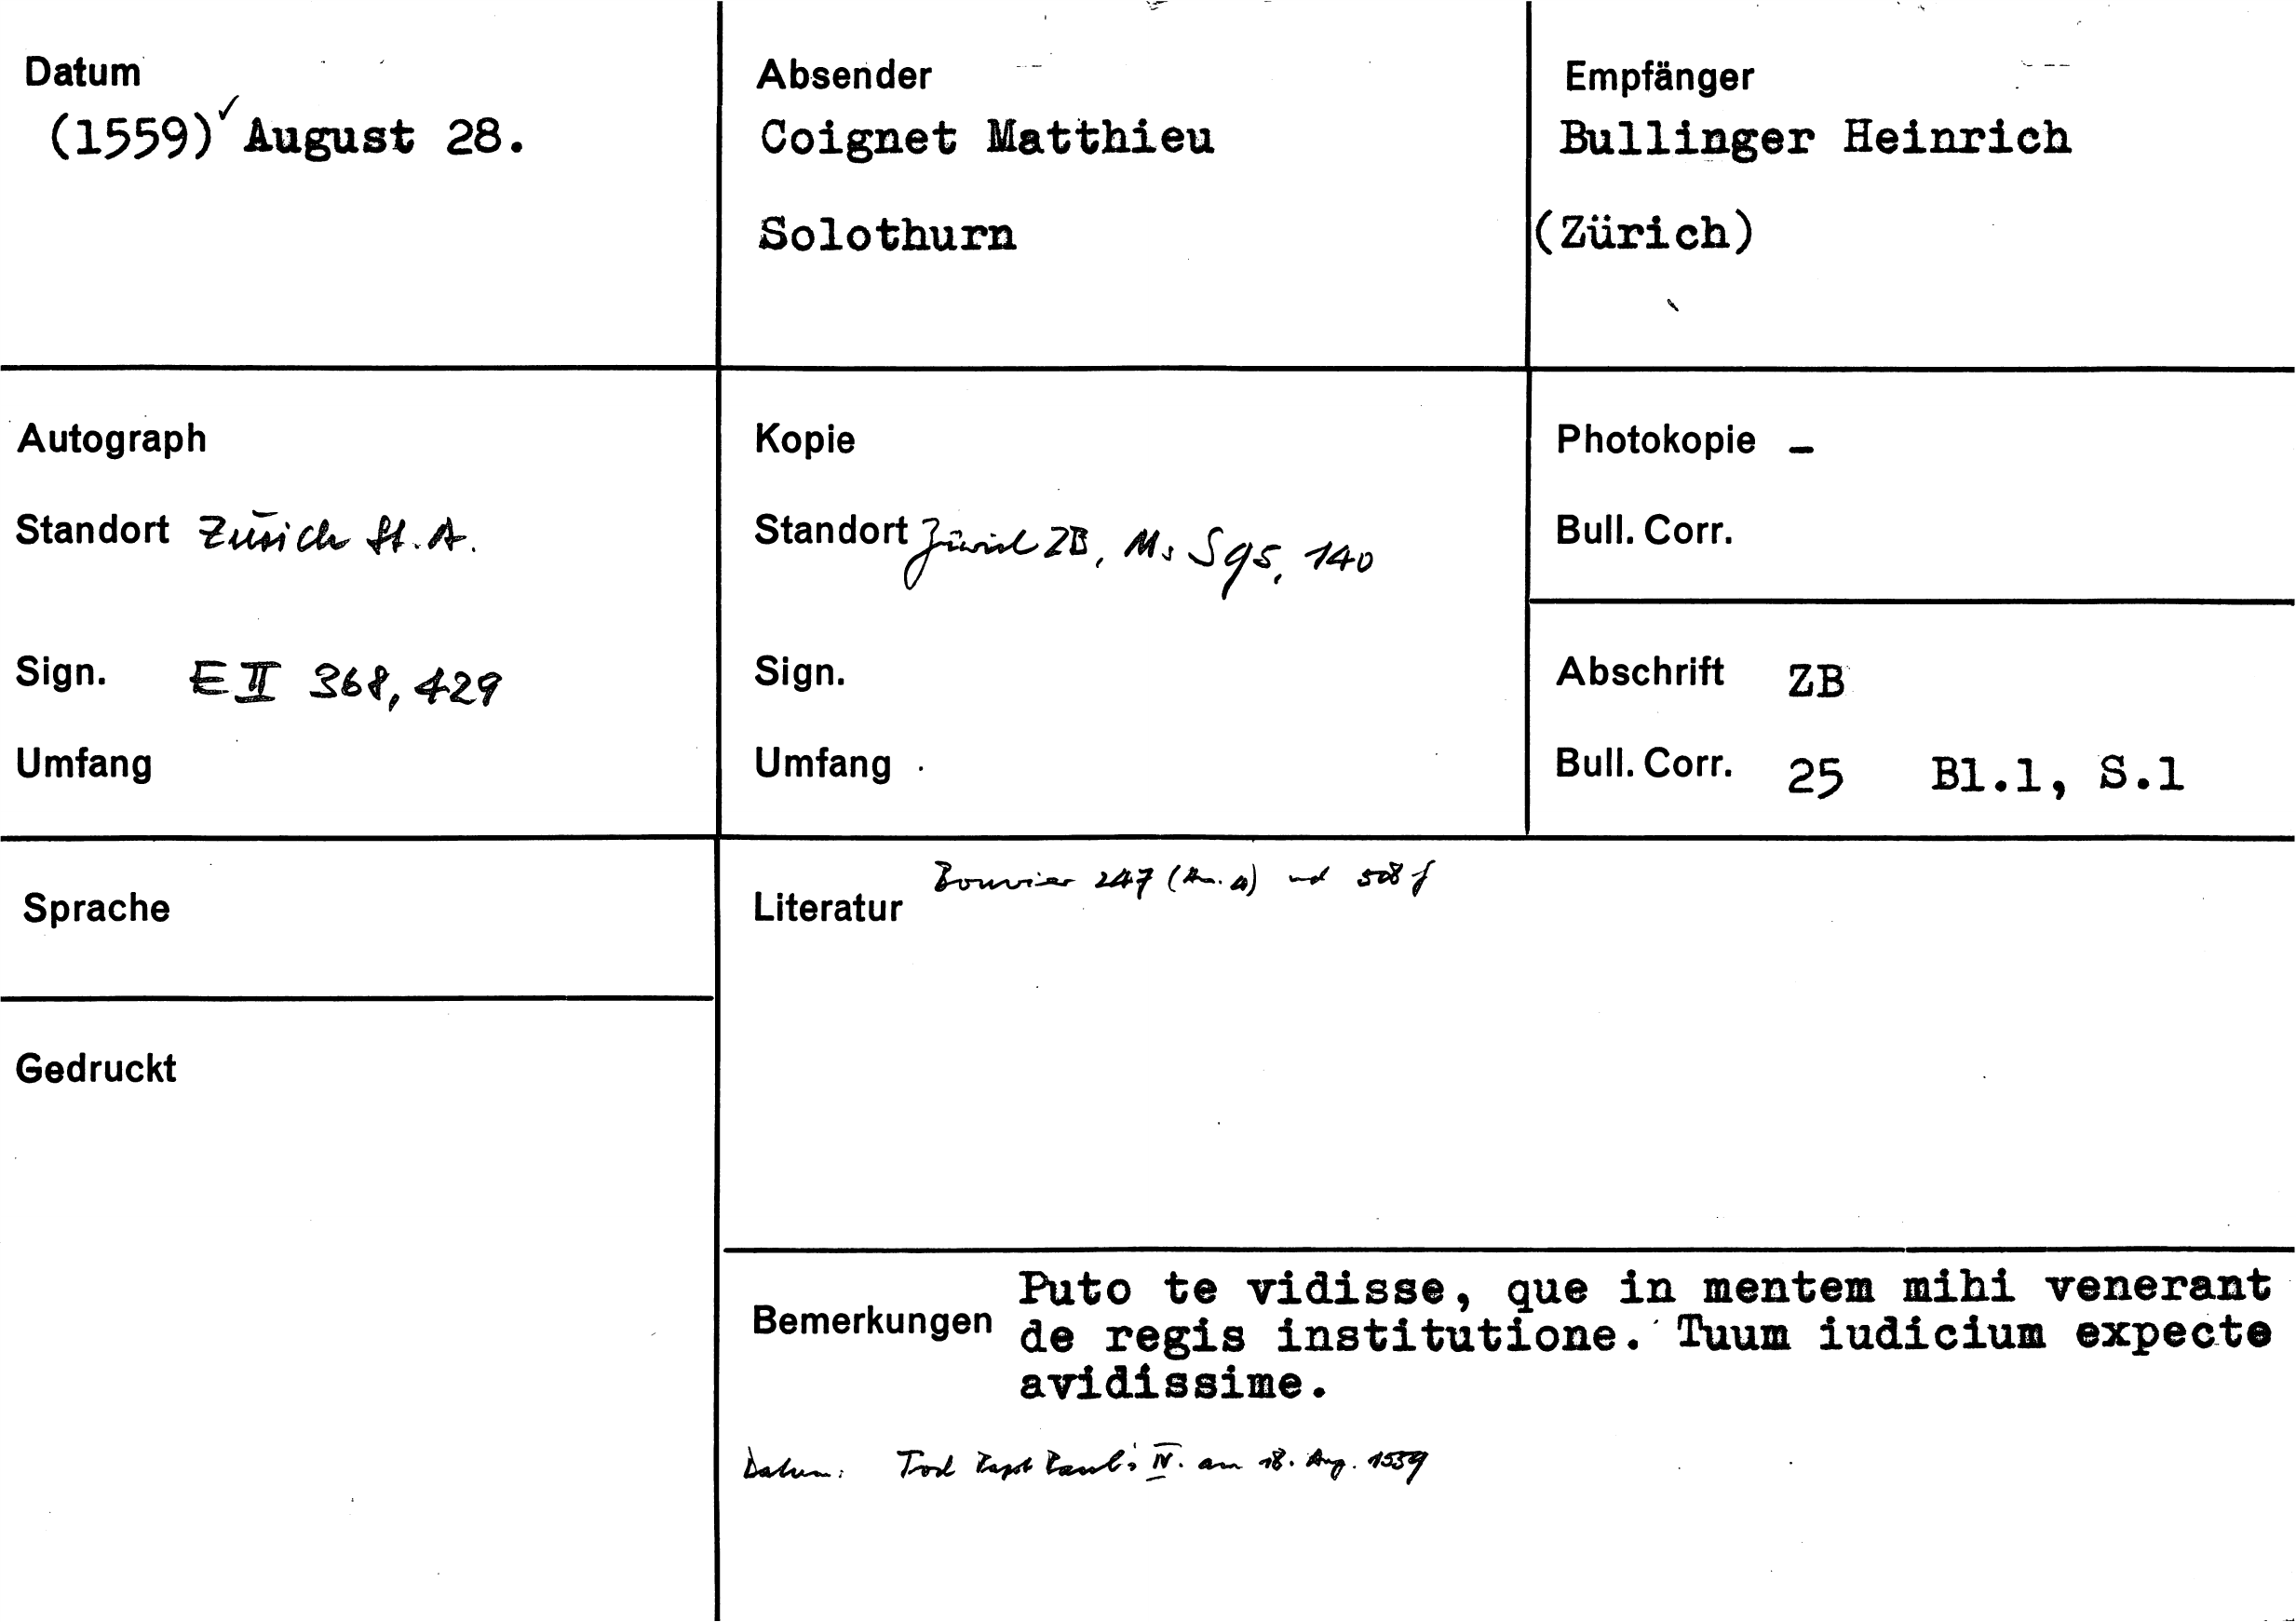 Datum
(1559)✓ August 28.
Absender
Coignet Matthieu
Solothurn
Empfänger
Bullinger Heinrich
(Zürich)
Autograph
Standort Zürich St.A.
Sign. E II 368, 429
Umfang
Kopie
Standort Zürich ZB, Ms S 95, 140
Sign.
Umfang
Photokopie –
Bull. Corr.
Abschrift ZB
Bull. Corr. 25 Bl.1, S.1
Sprache
Gedruckt
Literatur Bouvier 247 (An. 4) und 508 f
Bemerkungen Puto te vidisse, que in mentem mihi venerant
de regis institutione. Tuum iudicium expecto
avidissime.
Datum: Tod Papst Paul's IV. am 18. Aug. 1559